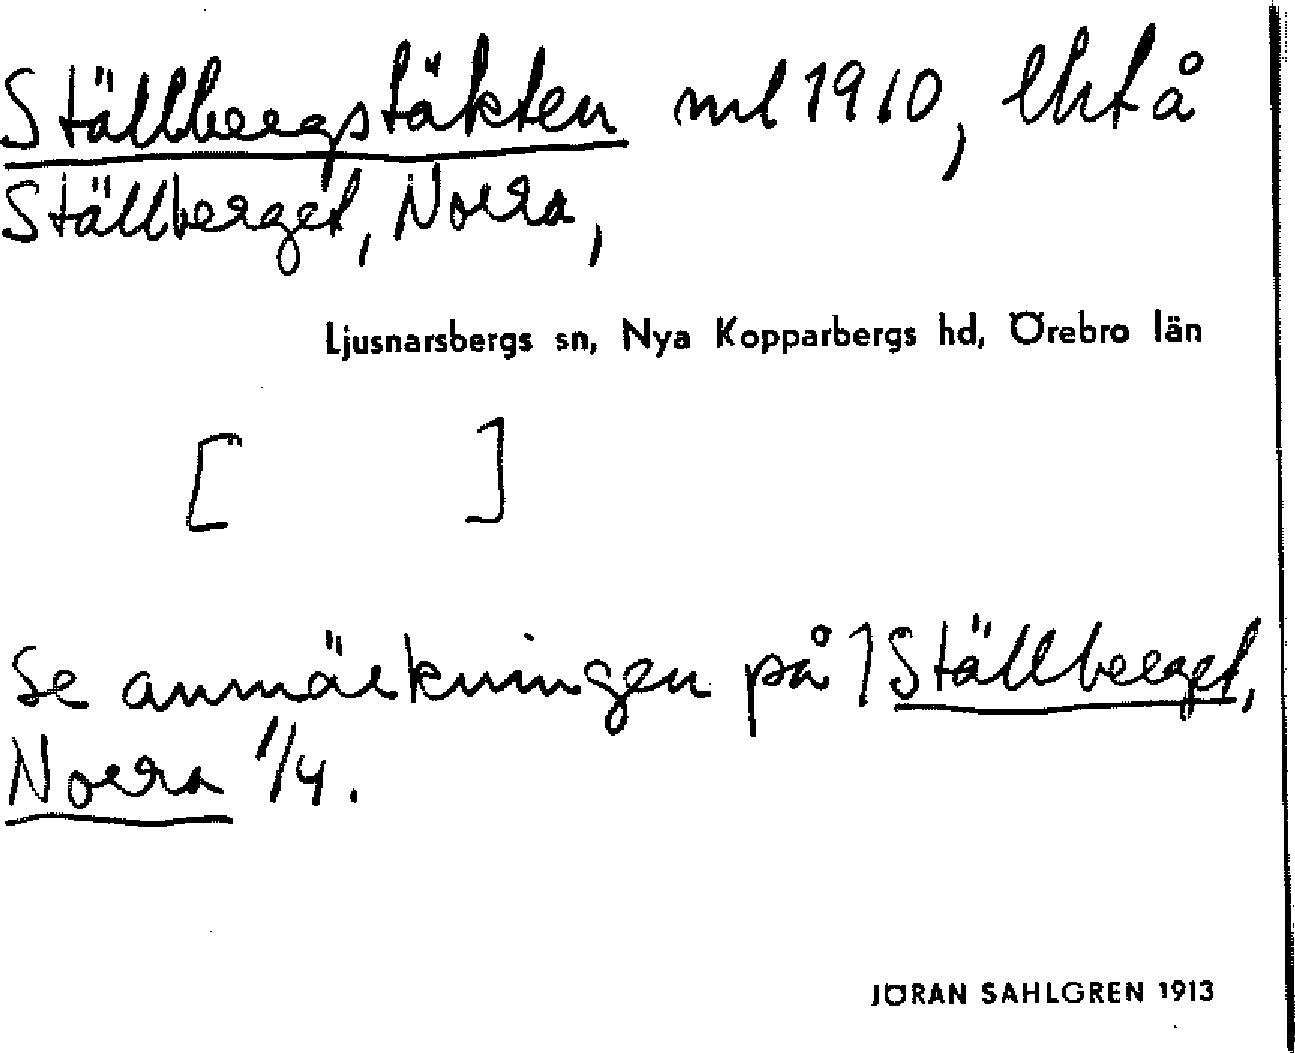 Ställbergstäkten ml 1910, lht å
Ställberget, Norra,
Ljusnarsbergs sn, Nya Kopparbergs hd, Örebro län
[ ]
Se anmärkningen på 1 Ställberget,
Norra 1/4.
JÖRAN SAHLGREN 1913